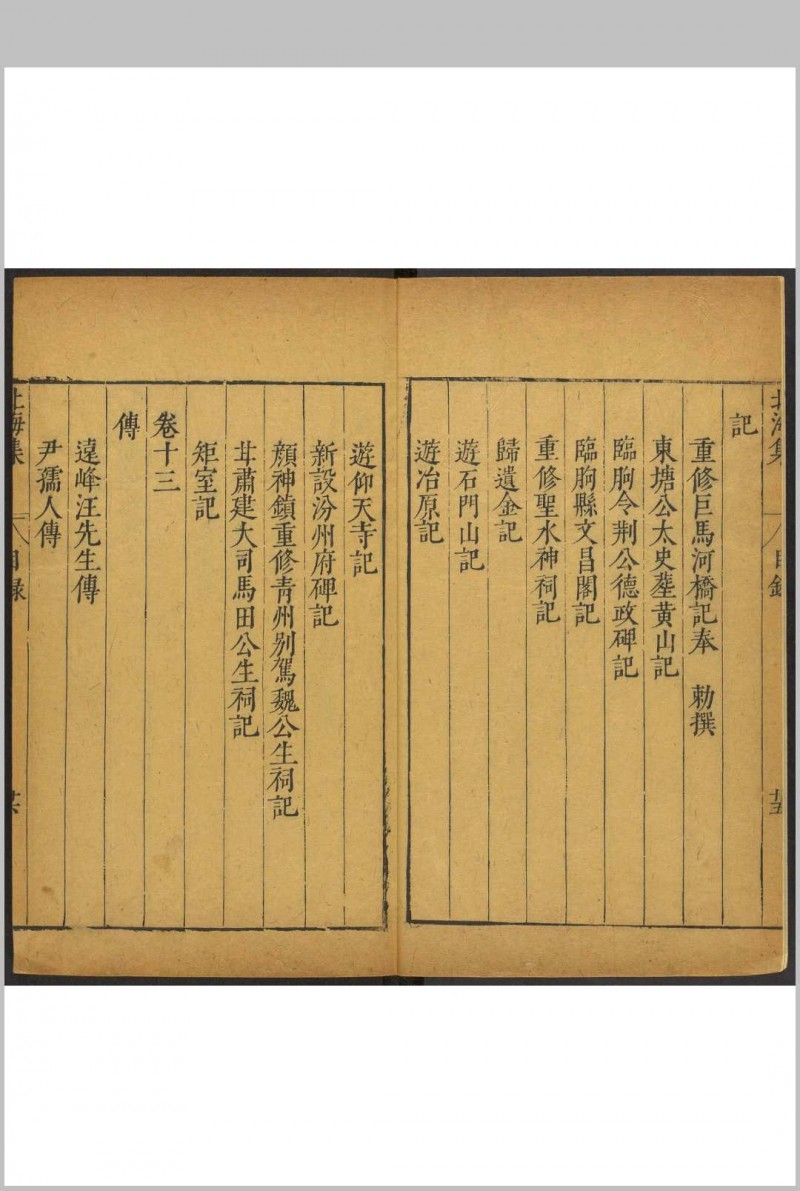 北海集 目錄 廿五
記
重修巨馬河橋記奉 勅撰
東塘公太史塟黄山記
臨朐令荆公德政碑記
臨朐縣文昌閣記
重修聖水神祠記
歸遺金記
遊石門山記
遊冶原記
遊仰天寺記
新設汾州府碑記
顔神鎮重修青州别駕魏公生祠記
甘肅建大司馬田公生祠記
矩室記
卷十三
傳
遠峰汪先生傳
尹孺人傳
北海集 目錄 廿六